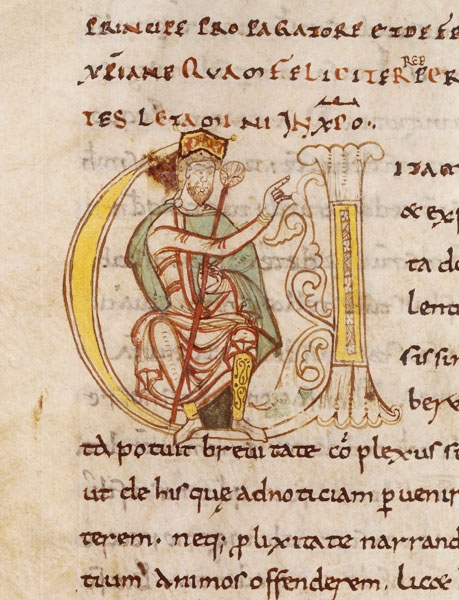 PRINCIPE PROPAGATORE ET DE FE
XPIANE QUAM FELICITER REP PER
TES LETAMINI IN XPO.
ITAM
& exp
ta do
lent
sissim
berev
ta potuit brevitate cō plexus s
ut de his quę ad noticiam p̱ venir
terem. neq; p̱lixitate narrand
tium animos offenderem. licæ